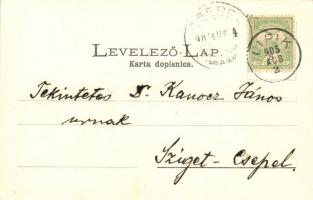 LEVELEZŐ-LAP.
Karta dopisnica.
LIPIK
905
AUG
2
Tekintetes Dr Kanocz János
urnak
Sziget-Csepel.